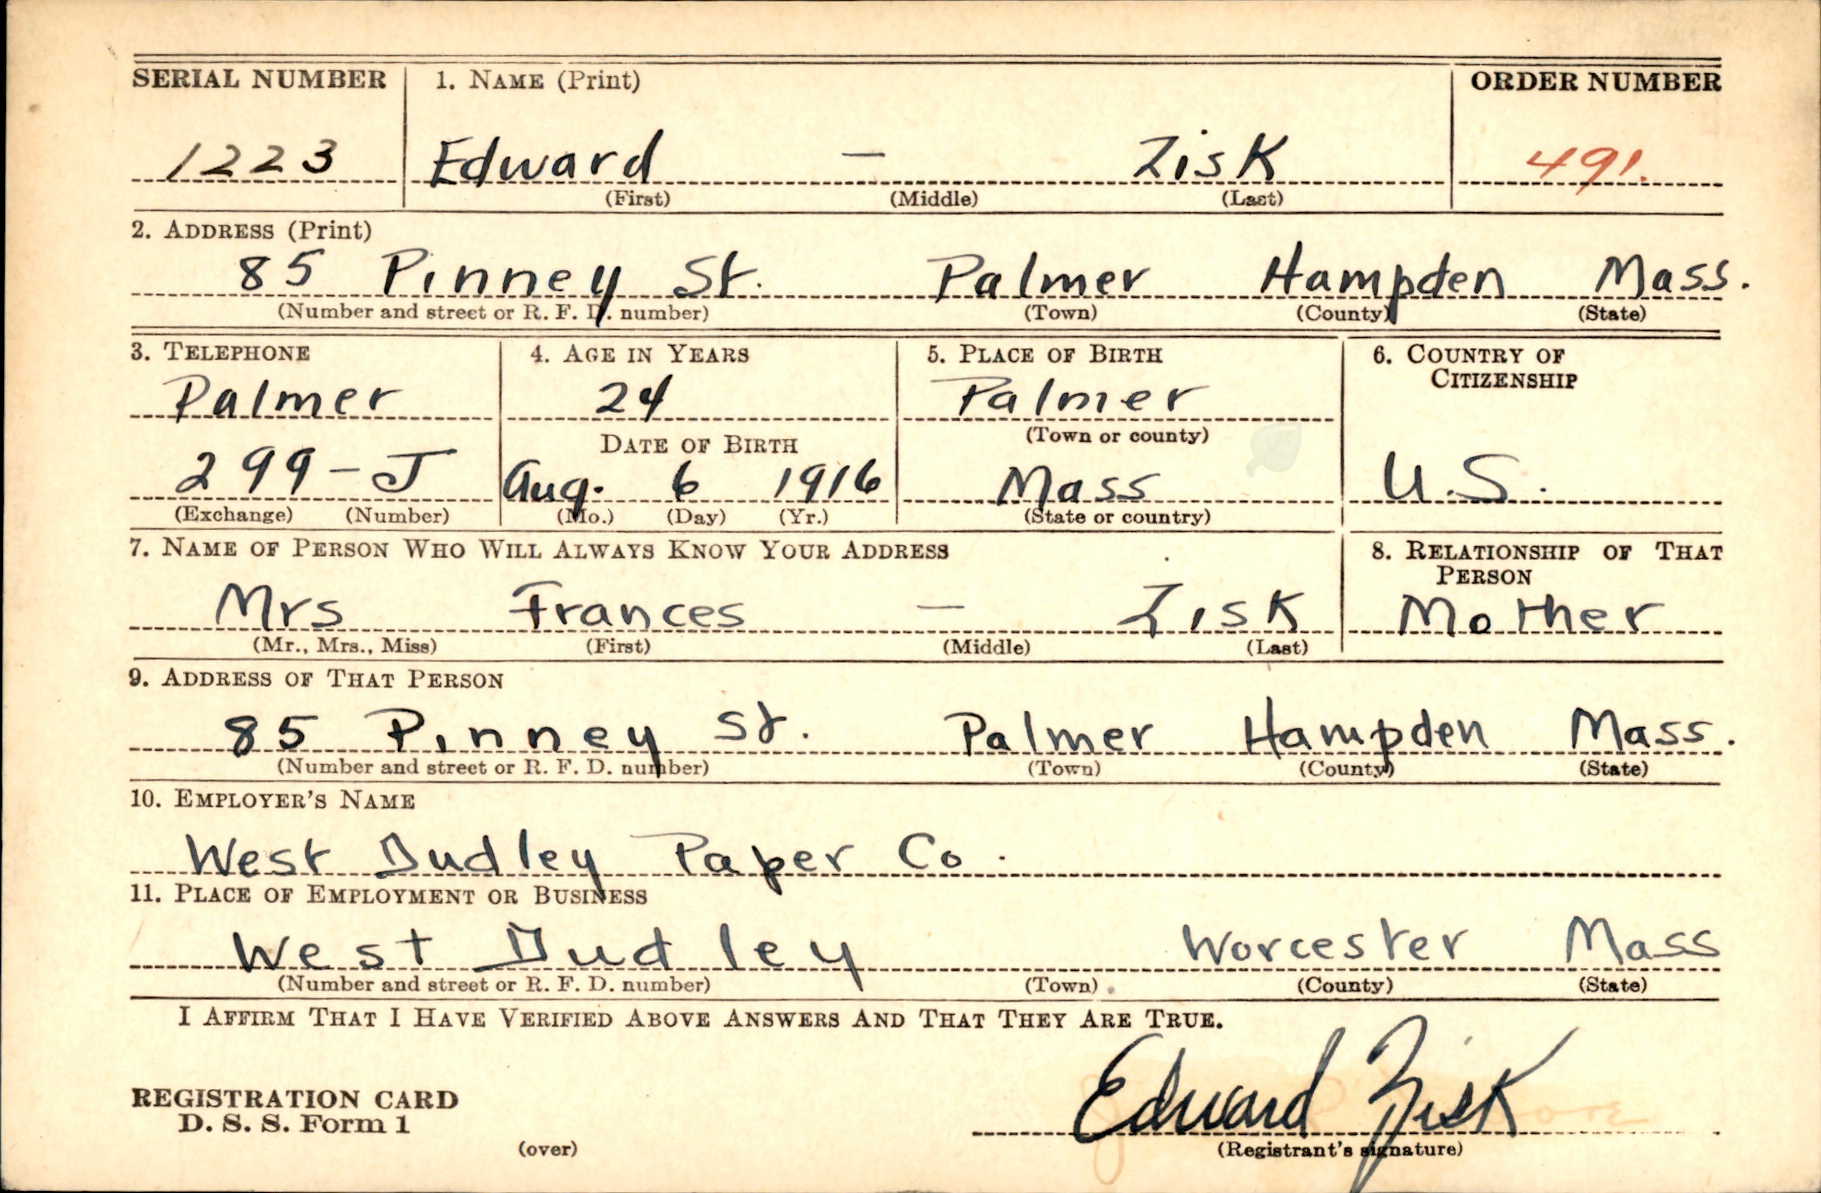 SERIAL NUMBER 1. NAME (Print) ORDER NUMBER
1223 Edward — Zisk 491.
(First) (Middle) (Last)
2. ADDRESS (Print)
85 Pinney St. Palmer Hampden Mass.
(Number and street or R. F. D. number) (Town) (County) (State)
3. TELEPHONE 4. AGE IN YEARS 5. PLACE OF BIRTH 6. COUNTRY OF
CITIZENSHIP
Palmer 24 Palmer
DATE OF BIRTH (Town or county)
299-J Aug. 6 1916 Mass U.S.
(Exchange) (Number) (Mo.) (Day) (Yr.) (State or country)
7. NAME OF PERSON WHO WILL ALWAYS KNOW YOUR ADDRESS 8. RELATIONSHIP OF THAT
PERSON
Mrs Frances — Zisk Mother
(Mr., Mrs., Miss) (First) (Middle) (Last)
9. ADDRESS OF THAT PERSON
85 Pinney St. Palmer Hampden Mass.
(Number and street or R. F. D. number) (Town) (County) (State)
10. EMPLOYER'S NAME
West Dudley Paper Co.
11. PLACE OF EMPLOYMENT OR BUSINESS
West Dudley Worcester Mass
(Number and street or R. F. D. number) (Town) (County) (State)
I AFFIRM THAT I HAVE VERIFIED ABOVE ANSWERS AND THAT THEY ARE TRUE.
REGISTRATION CARD
D. S. S. Form 1
Edward Zisk
(over) (Registrant's signature)